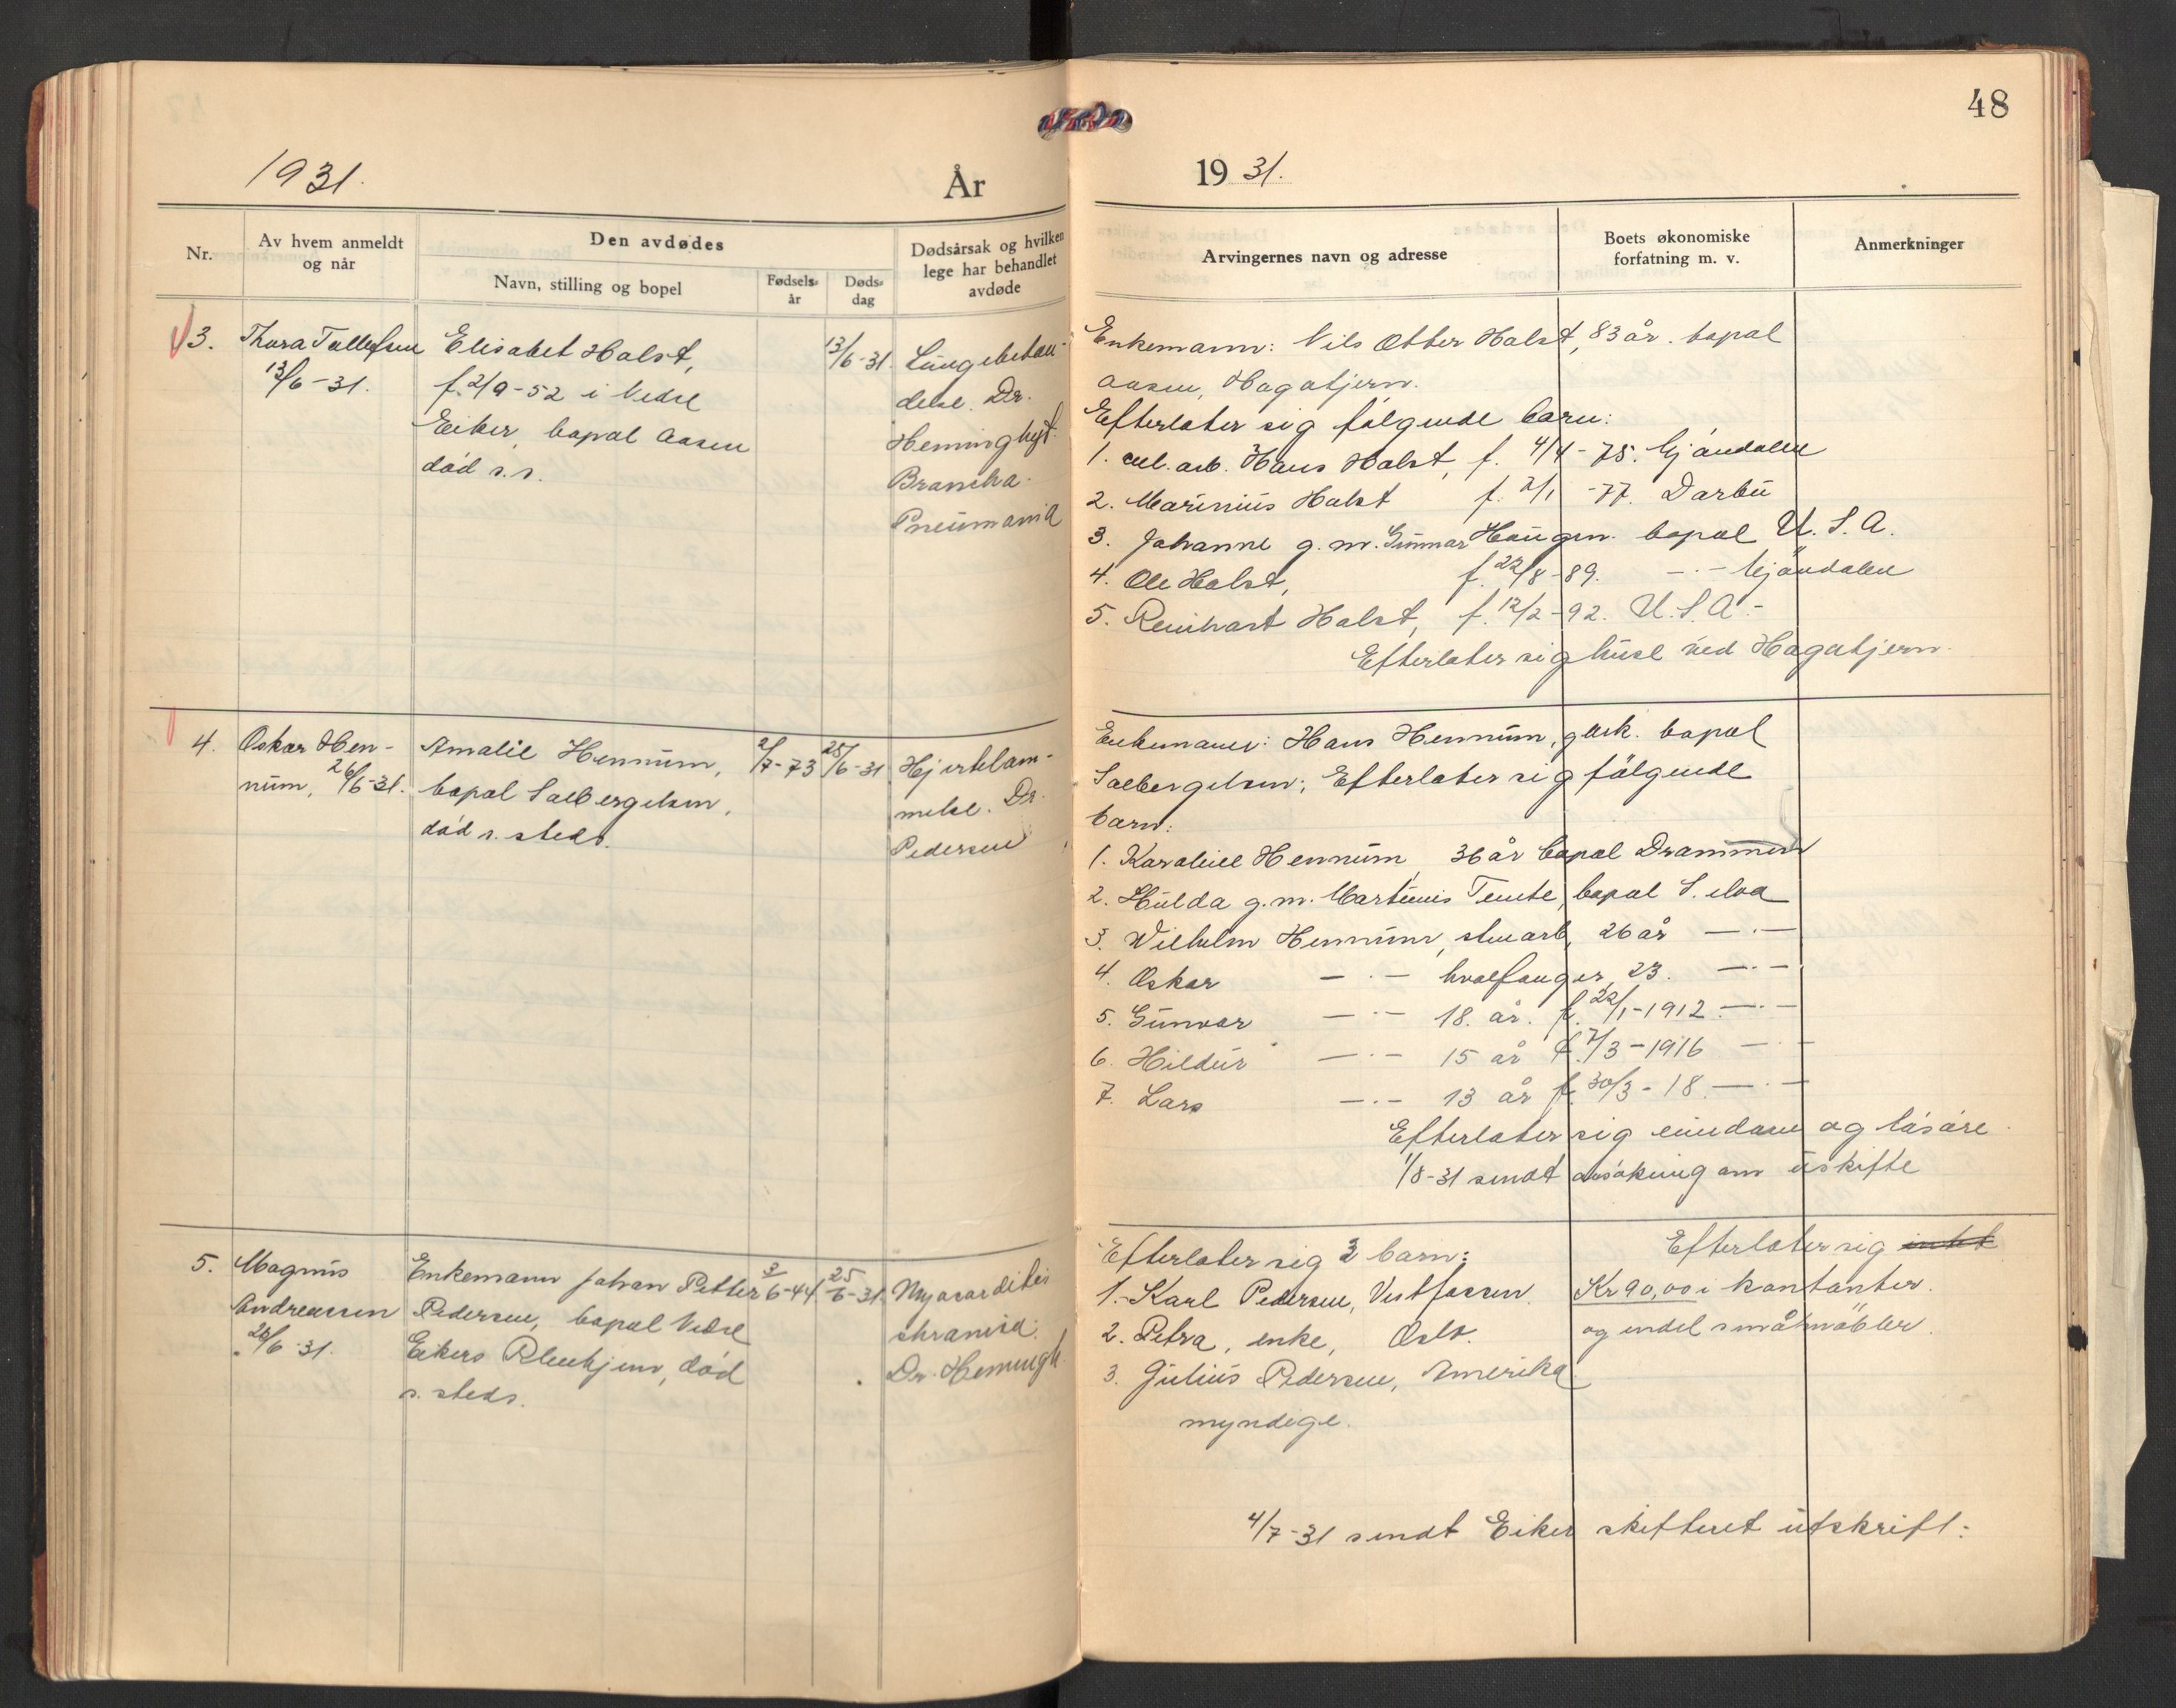 48
1931.
År
19 31.
Nr.
Av hvem anmeldt
og når
Den avdødes
Navn, stilling og bopel
Fødsels-
år
Døds-
dag
Dødsårsak og hvilken
lege har behandlet
avdøde
Arvingernes navn og adresse
Boets økonomiske
forfatning m. v.
Anmerkninger
3.
Thora Tollefsen
13/6-31.
Elisabet Holst,
f. 2/9-52 i Nedre
Eiker, bopæl Aasen
død s.s.
13/6-31
Lungebetæn-
delse. Dr.
Heminghyt.
Broncho-
Pneumonia
Enkemann: Nils Otter Holst, 83 år. bopæl
Aasen, Hagatjern.
Efterlater sig følgende barn:
1. cel. arb. Hans Holst, f. 4/4-75. Mjøndalen
2. Marinius Holst f. 2/1-77. Darbu
3. Johanne g.m. Gunnar Haugen. bopæl U.S.A.
4. Ole Holst, f. 22/8-89. —.— Mjøndalen
5. Reinhart Holst, f. 12/2-92. U.S.A.-
Efterlater sig huse ved Hagatjern.
4.
Oskar Hen-
num, 26/6-31.
Amalie Hennum,
bopæl Solbergelven,
død s. steds.
2/7-73
25/6-31
Hjertelam-
melse. Dr.
Pedersen
Enkemann: Hans Hennum, bopæl
Solbergelven; Efterlater sig følgende
barn:
1. Karoline Hennum 36 år bopæl Drammen
2. Hulda g.m. Martinius Temte, bopæl S. elva
3. Wilhelm Hennum, 26 år —.—
4. Oskar —.— hvalfanger, 23. —.—
5. Gunvor —.— 18. år. f. 22/1-1912. —.—
6. Hildur —.— 15 år f. 7/3-1916 —.—
7. Lars —.— 13 år f. 30/3-18. —.—
Efterlater sig eiendom og løsøre.
1/8-31 sendt ansøkning om uskifte
5.
Magnus
Andreassen
26/6-31.
Enkemann Johan Petter
Pedersen, bopæl Nedre
Eikers Pleiehjem, død
s. steds.
3/6-44.
25/6-31.
Myocarditis
chronica.
Dr. Hemingh.
Efterlater sig 3 barn:
1. Karl Pedersen, Vestfossen.
2. Petra, enke, Oslo.
3. Julius Pedersen, Amerika
myndige.
Efterlater sig intet
Kr 90,00 i kontanter.
og endel småmøbler.
4/7-31 sendt Eiker skifteret utskrift.